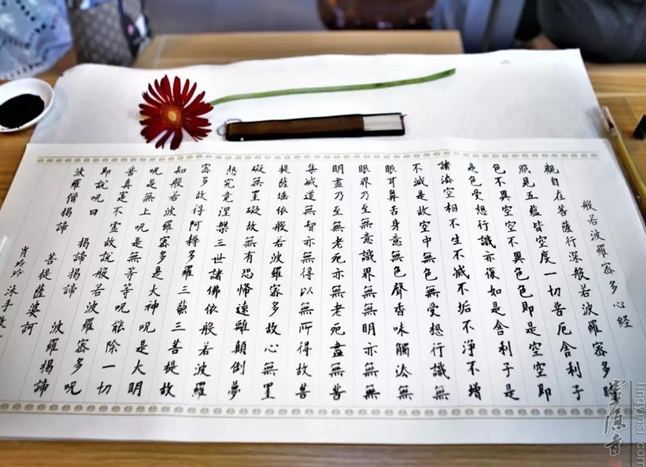 般若波羅蜜多心經
觀自在菩薩行深般若波羅蜜多時
照見五蘊皆空度一切苦厄舍利子
色不異空空不異色色即是空空即
是色受想行識亦復如是舍利子是
諸法空相不生不滅不垢不淨不增
不減是故空中無色無受想行識無
眼耳鼻舌身意無色聲香味觸法無
眼界乃至無意識界無無明亦無無
明盡乃至無老死亦無老死盡無苦
集滅道無智亦無得以無所得故菩
提薩埵依般若波羅蜜多故心無罣
礙無罣礙故無有恐怖遠離顛倒夢
想究竟涅槃三世諸佛依般若波羅
蜜多故得阿耨多羅三藐三菩提故
知般若波羅蜜多是大神呪是大明
呪是無上呪是無等等呪能除一切
苦真實不虛故說般若波羅蜜多呪
即說呪曰 揭諦揭諦 波羅揭諦
波羅僧揭諦 菩提薩婆訶
沐手敬